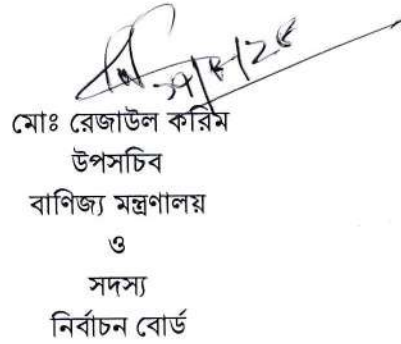 মোঃ রেজাউল করিম
উপসচিব
বাণিজ্য মন্ত্রণালয়
ও
সদস্য
নির্বাচন বোর্ড